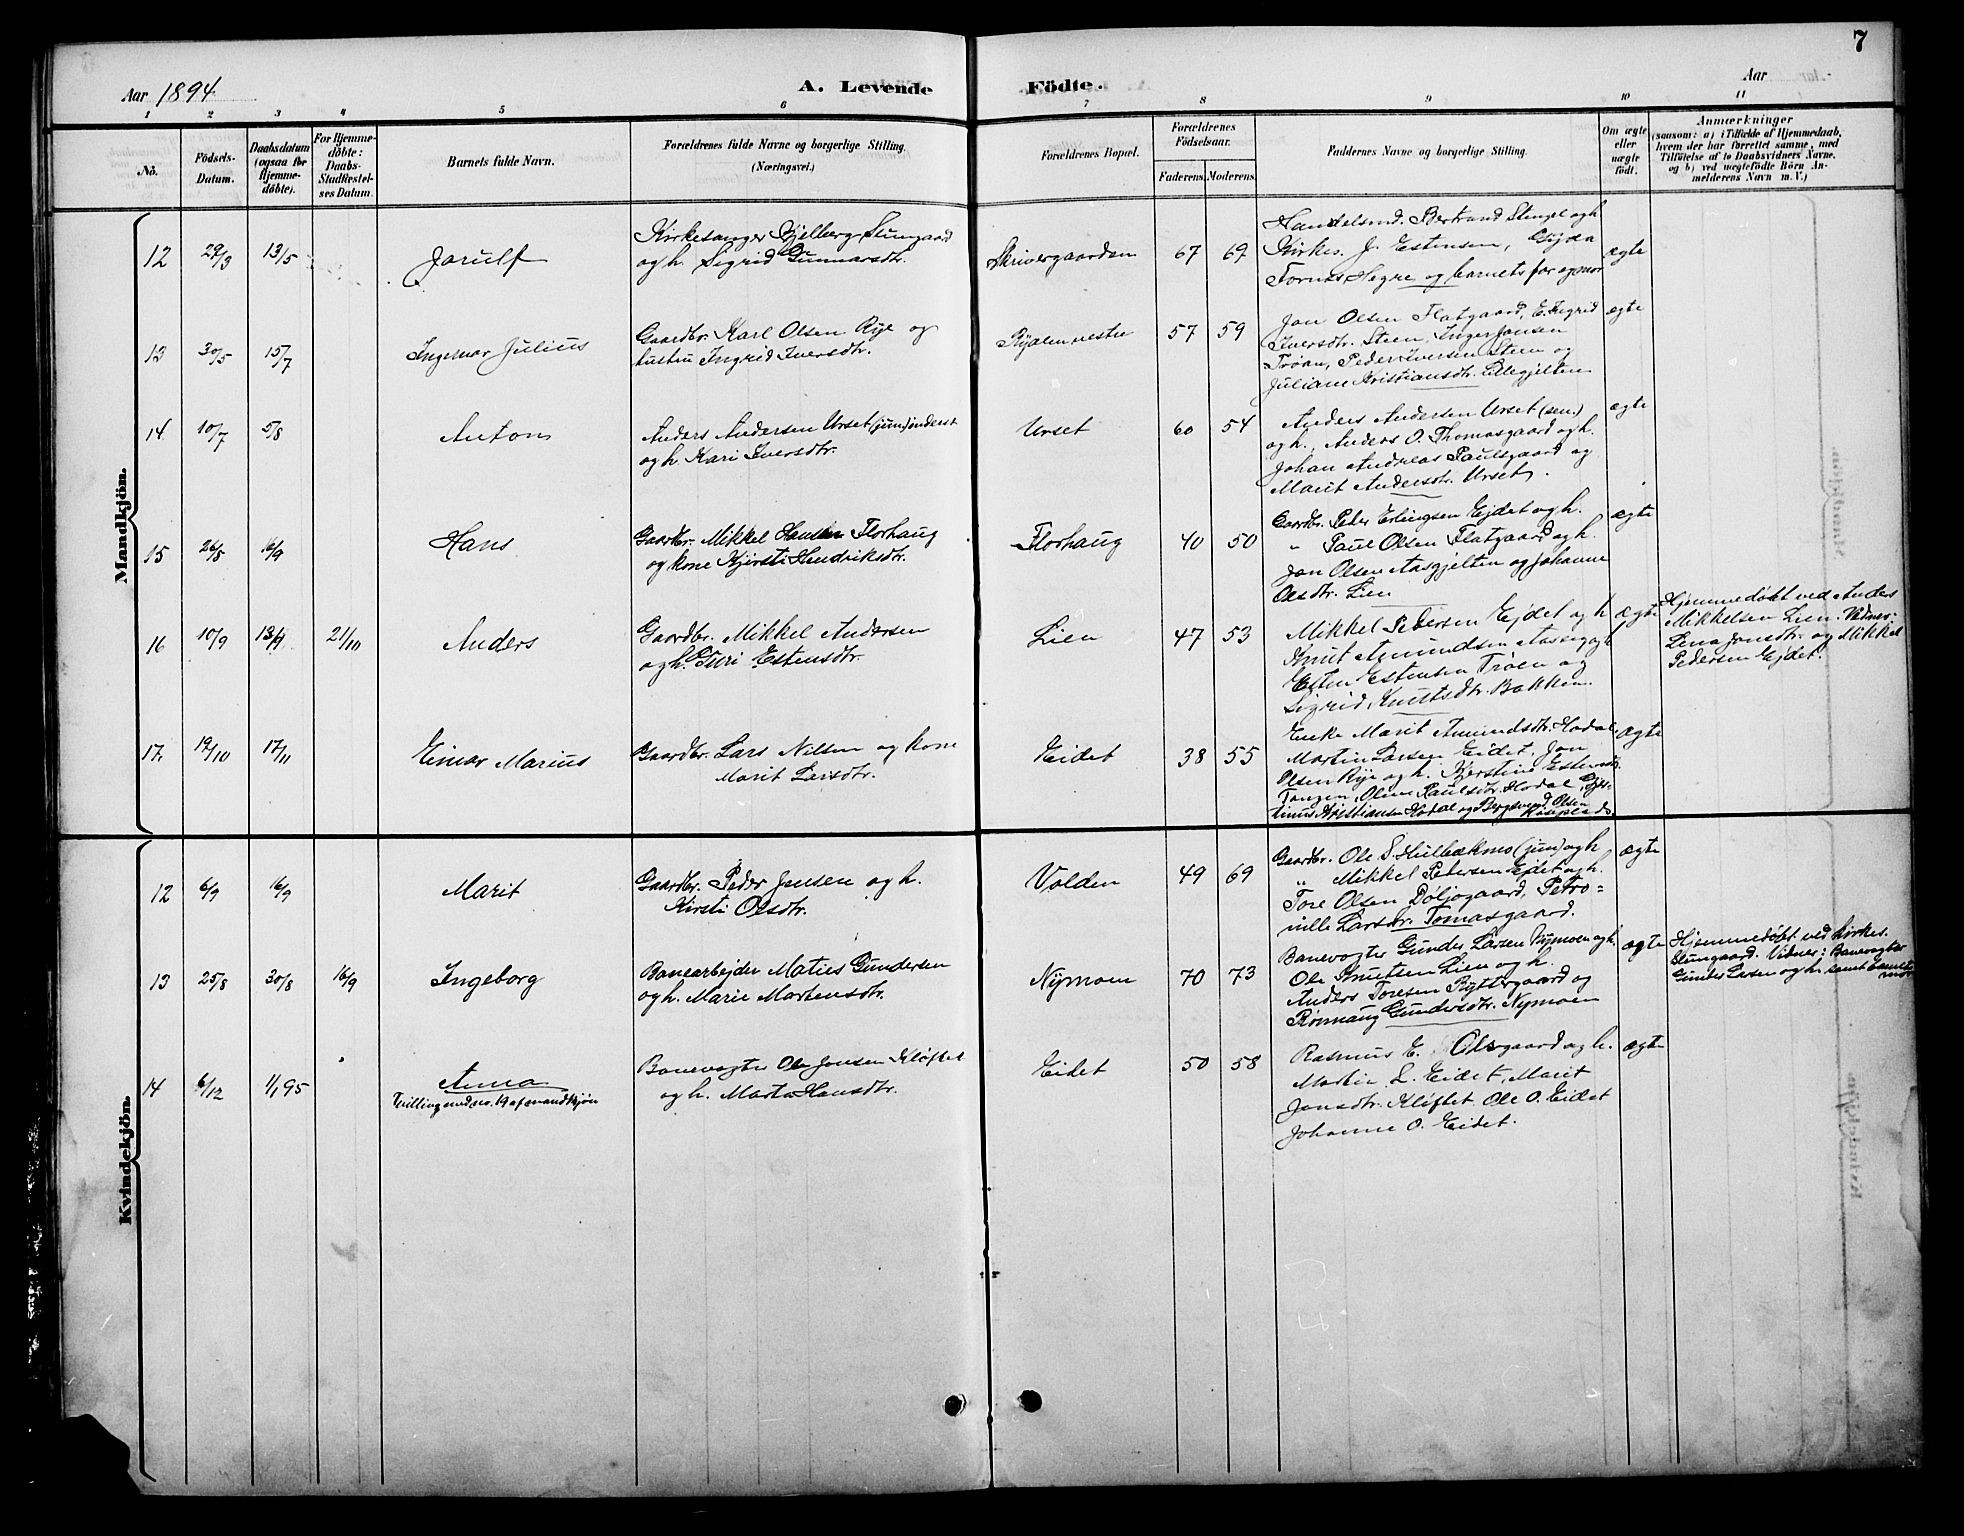 7
Aar 1894
A. Levende Födte.
Aar
1 2 3 4 5 6 7 8 9 10 11
No.
Födsels-Datum.
Daabsdatum (ogsaa for Hjemme-döbte).
For Hjemme-döbte: Daabs-Stadfæstel-ses Datum.
Barnets fulde Navn.
Forældrenes fulde Navne og borgerlige Stilling. (Næringsvei.)
Forældrenes Bopæl.
Forældrenes Födselsaar.
Faderens. Moderens.
Faddernes Navne og borgerlige Stilling.
Om ægte eller uægte født.
Anmærkninger
(saasom: a) i Tilfælde af Hjemmedaab, hvem der har forrettet samme, med Tilføielse af to Daabsvidners Navne, og b) ved uægtefödte Börn Anmelderens Navn m. V.)
Mandkjön.
12 29/3 13/5 Jorulf
Kirkesanger Kjelberg Stungaard
og h. Sigrid Gunnarsdtr.
Skrivergaarden 67 69
Handelsmd. Bertrand Stengel og h.
Kirkes. J. Estensen, Gyda
Tornæs Hegre og barnets far og mor
ægte
13 30/5 15/7 Ingemar Julius
Gaardbr. Karl Olsen Rye og
hustru Ingrid Iversdtr.
Ryalen vestre 57 59
Jon Olsen Flatgaard, E. Sigrid
Iversdtr. Steen, Inger Jonsen
Trøan, Peder Iversen Steen og
Juliane Kristiansdtr. Lillegjelten
ægte
14 10/7 5/8 Anton
Anders Andersen Urset (jun)
og h. Kari Iversdtr.
Urset 60 54
Anders Andersen Urset (sen.)
og h., Anders O. Thomasgaard og h.
Johan Andreas Paulsgaard og
Marit Andersdtr. Urset.
ægte
15 26/8 16/9 Hans
Gaardbr. Mikkel Hansen Florhaug
og kone Kjersti Hendriksdtr.
Florhaug 40 50
Gaardbr. Peder Erlingsen Ejdet og h.
" Paul Olsen Flatgaard og h.
Jon Olsen Aasgjelten og Johanne
Olsdtr. Lien
ægte
16 10/9 21/10 Anders
Gaardbr. Mikkel Andersen
og h. Guri Estensdtr.
Lien 47 53
Mikkel Pedersen Ejdet og h
Knut Amundsen
Esten Estensen Trøen og
Sigrid Knutsdtr. Bakken.
ægte
Hjemmedøbt ved Anders
Mikkelsen Lien. Vidner:
Lena Jonsdtr. og Mikkel
Pedersen Ejdet.
17. 19/10 17/11 Einar Marius
Gaardbr. Lars Nilsen og kone
Marit Larsdtr.
Eidet 38 55
Enke Marit Amundsdtr. Hodal
Martin Larsen Eidet, Jon
Olsen Rye og h. Kjerstine Estensdtr.
Tangen, Oline Paulsdtr. Hodal,
Kristiansen Hodal og Bergsvend Olsen
ægte
Kvindekjön.
12 6/9 16/9 Marit
Gaardbr. Peder Jensen og h.
Kirsti Olsdtr.
Volden 49 69
Gaardbr. Ole S. Hulbækmo (jun) og h
" Mikkel Petersen Ejdet og h.
Tore Olsen Døljogaard, Petro=
nille Larsdtr. Tomasgaard.
ægte
13 25/8 30/8 16/9 Ingeborg
Banearbejder Matias Gundersen
og h. Marie Mortensdtr.
Nymoen 70 73
Banevogter Gunder Larsen Nymoen og h.
Ole Knutsen Lien og h.
Anders Toresen Ryttergaard og
Rønnaug Gundersdtr. Nymoen
ægte
Hjemmedøbt ved kirkes.
Stungaard. Vidner: Banevogter
Gunder Larsen og h. samt barnets
mor
14 6/12 1/1 95 Anna
Tvilling med no. 19 af mandkjøn
Banevogter Ole Jonsen Kløftet
og h. Marta Hansdtr.
Eidet 50 58
Rasmus E. Olsgaard og h.
Martin L. Eidet, Marit
Jonsdtr. Kløftet Ole O. Eidet
Johanne O. Eidet.
ægte